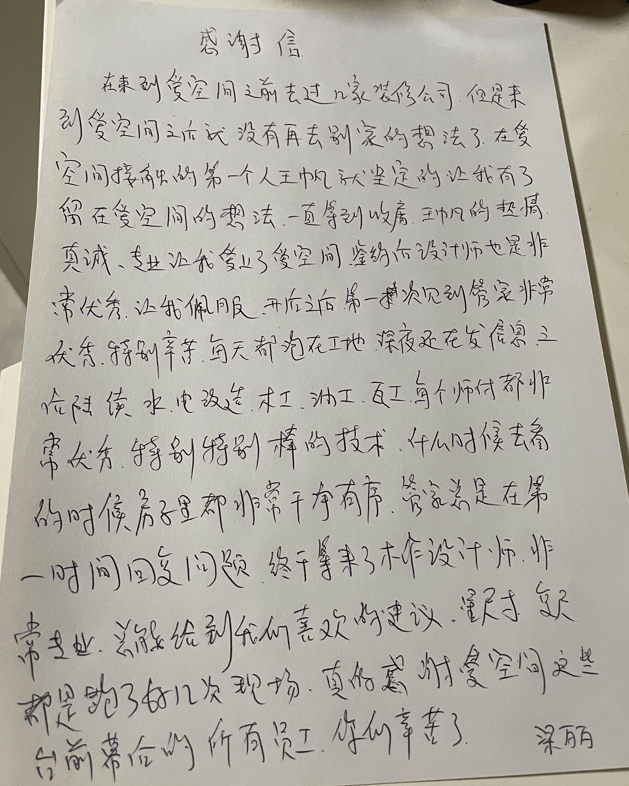 感谢信
在来到爱空间之前去过几家装修公司.但是来
到爱空间之后就没有再去别家的想法了.在爱
空间接触的第一个人王帅凡就坚定的让我有了
留在爱空间的想法.一直等到收房.王帅凡的热情.
真诚、专业让我爱上了爱空间.签约后设计师也是非
常优秀.让我佩服.开启之后第一次见到管家非常
优秀.特别辛苦.每天都泡在工地.深夜还在发信息.之
后陆续水.电改造.木工.油工.瓦工.每个师付都非
常优秀.特别特别棒的技术.什么时候去看
的时候房子里都非常干净有序.管家总是在第
一时间回复问题.终于等来了木作设计师.非
常专业.总能给到我们喜欢的建议.量尺寸复尺
都是跑了好几次现场.真的感谢爱空间这些
台前幕后的所有员工.你们辛苦了.
梁丽